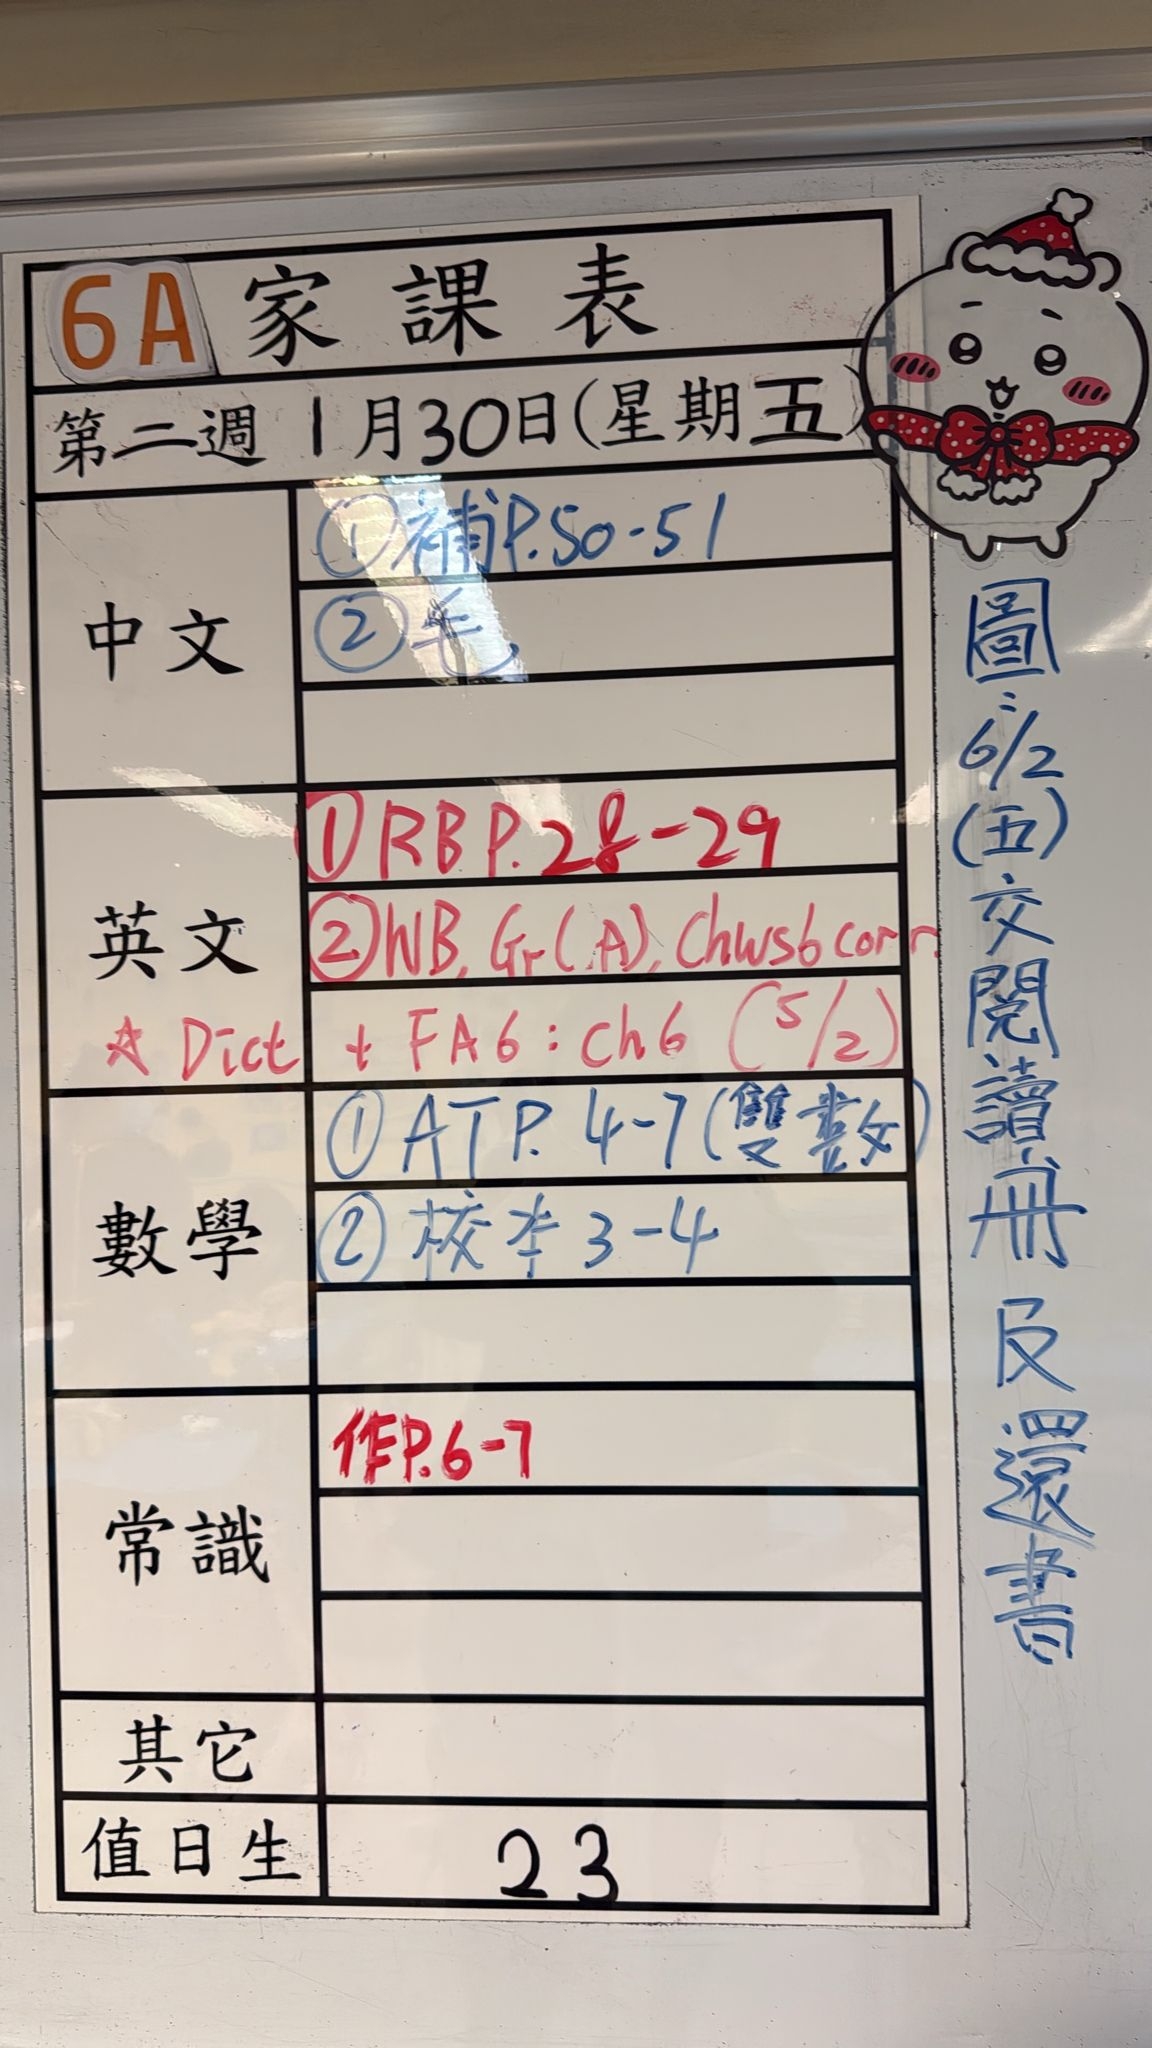 6A 家課表
第二週 1月30日(星期五)
中文
①補P.50-51
②毛
英文
①RB P.28-29
②WB, Gr(A), Chws6 corr.
☆ Dict + FA6: ch6 (5/2)
數學
①ATP. 4-7(雙數)
②校本3-4
常識
作P.6-7
其它
值日生
23
圖:6/2(五)交閱讀冊及還書